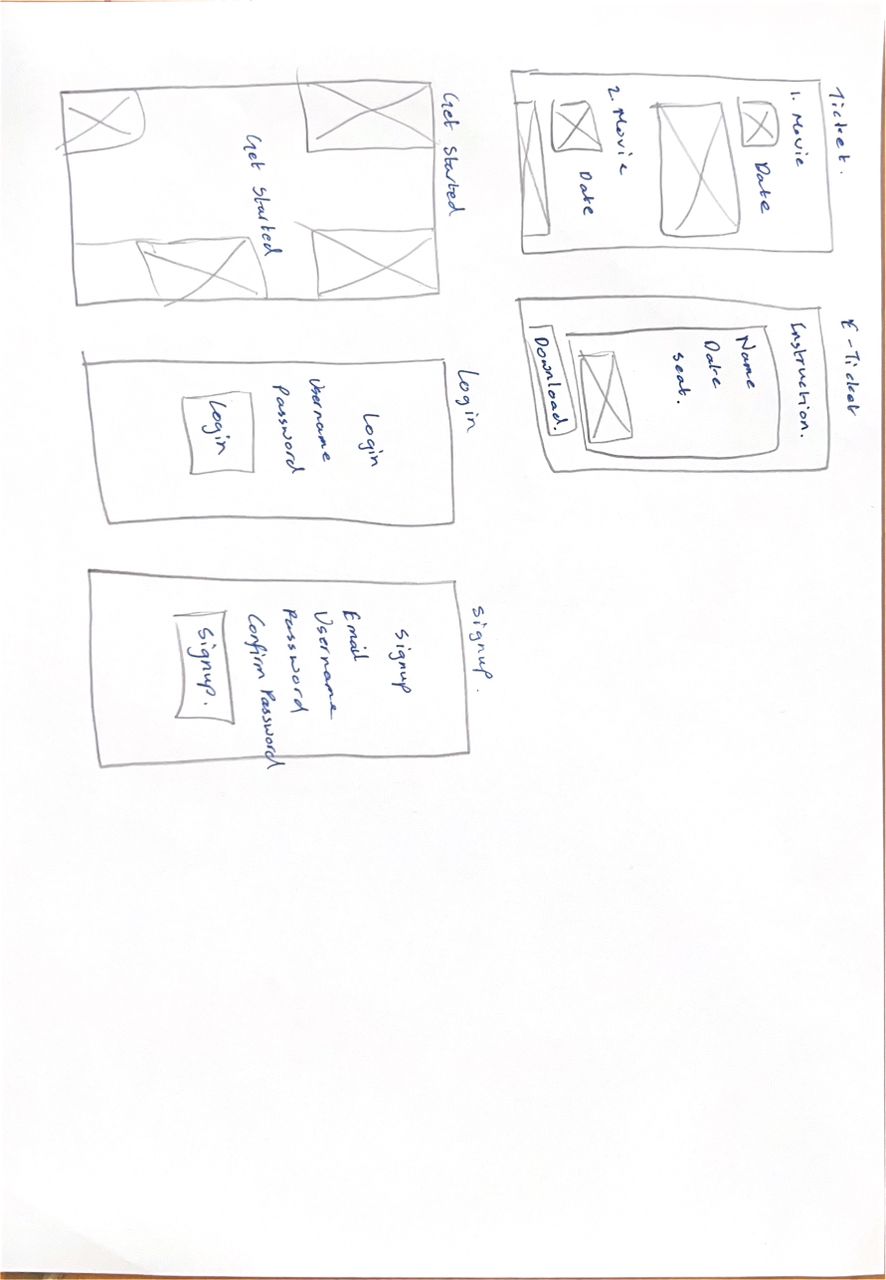 Ticket.
1. Movie
Date
2. Movie
Date
E-Ticket
Instruction.
Name
Date
Seat.
Download.
Get Started
Get Started
Login
Login
Username
Password
Login
Signup.
Signup
Email
Username
Password
Confirm Password
Signup.